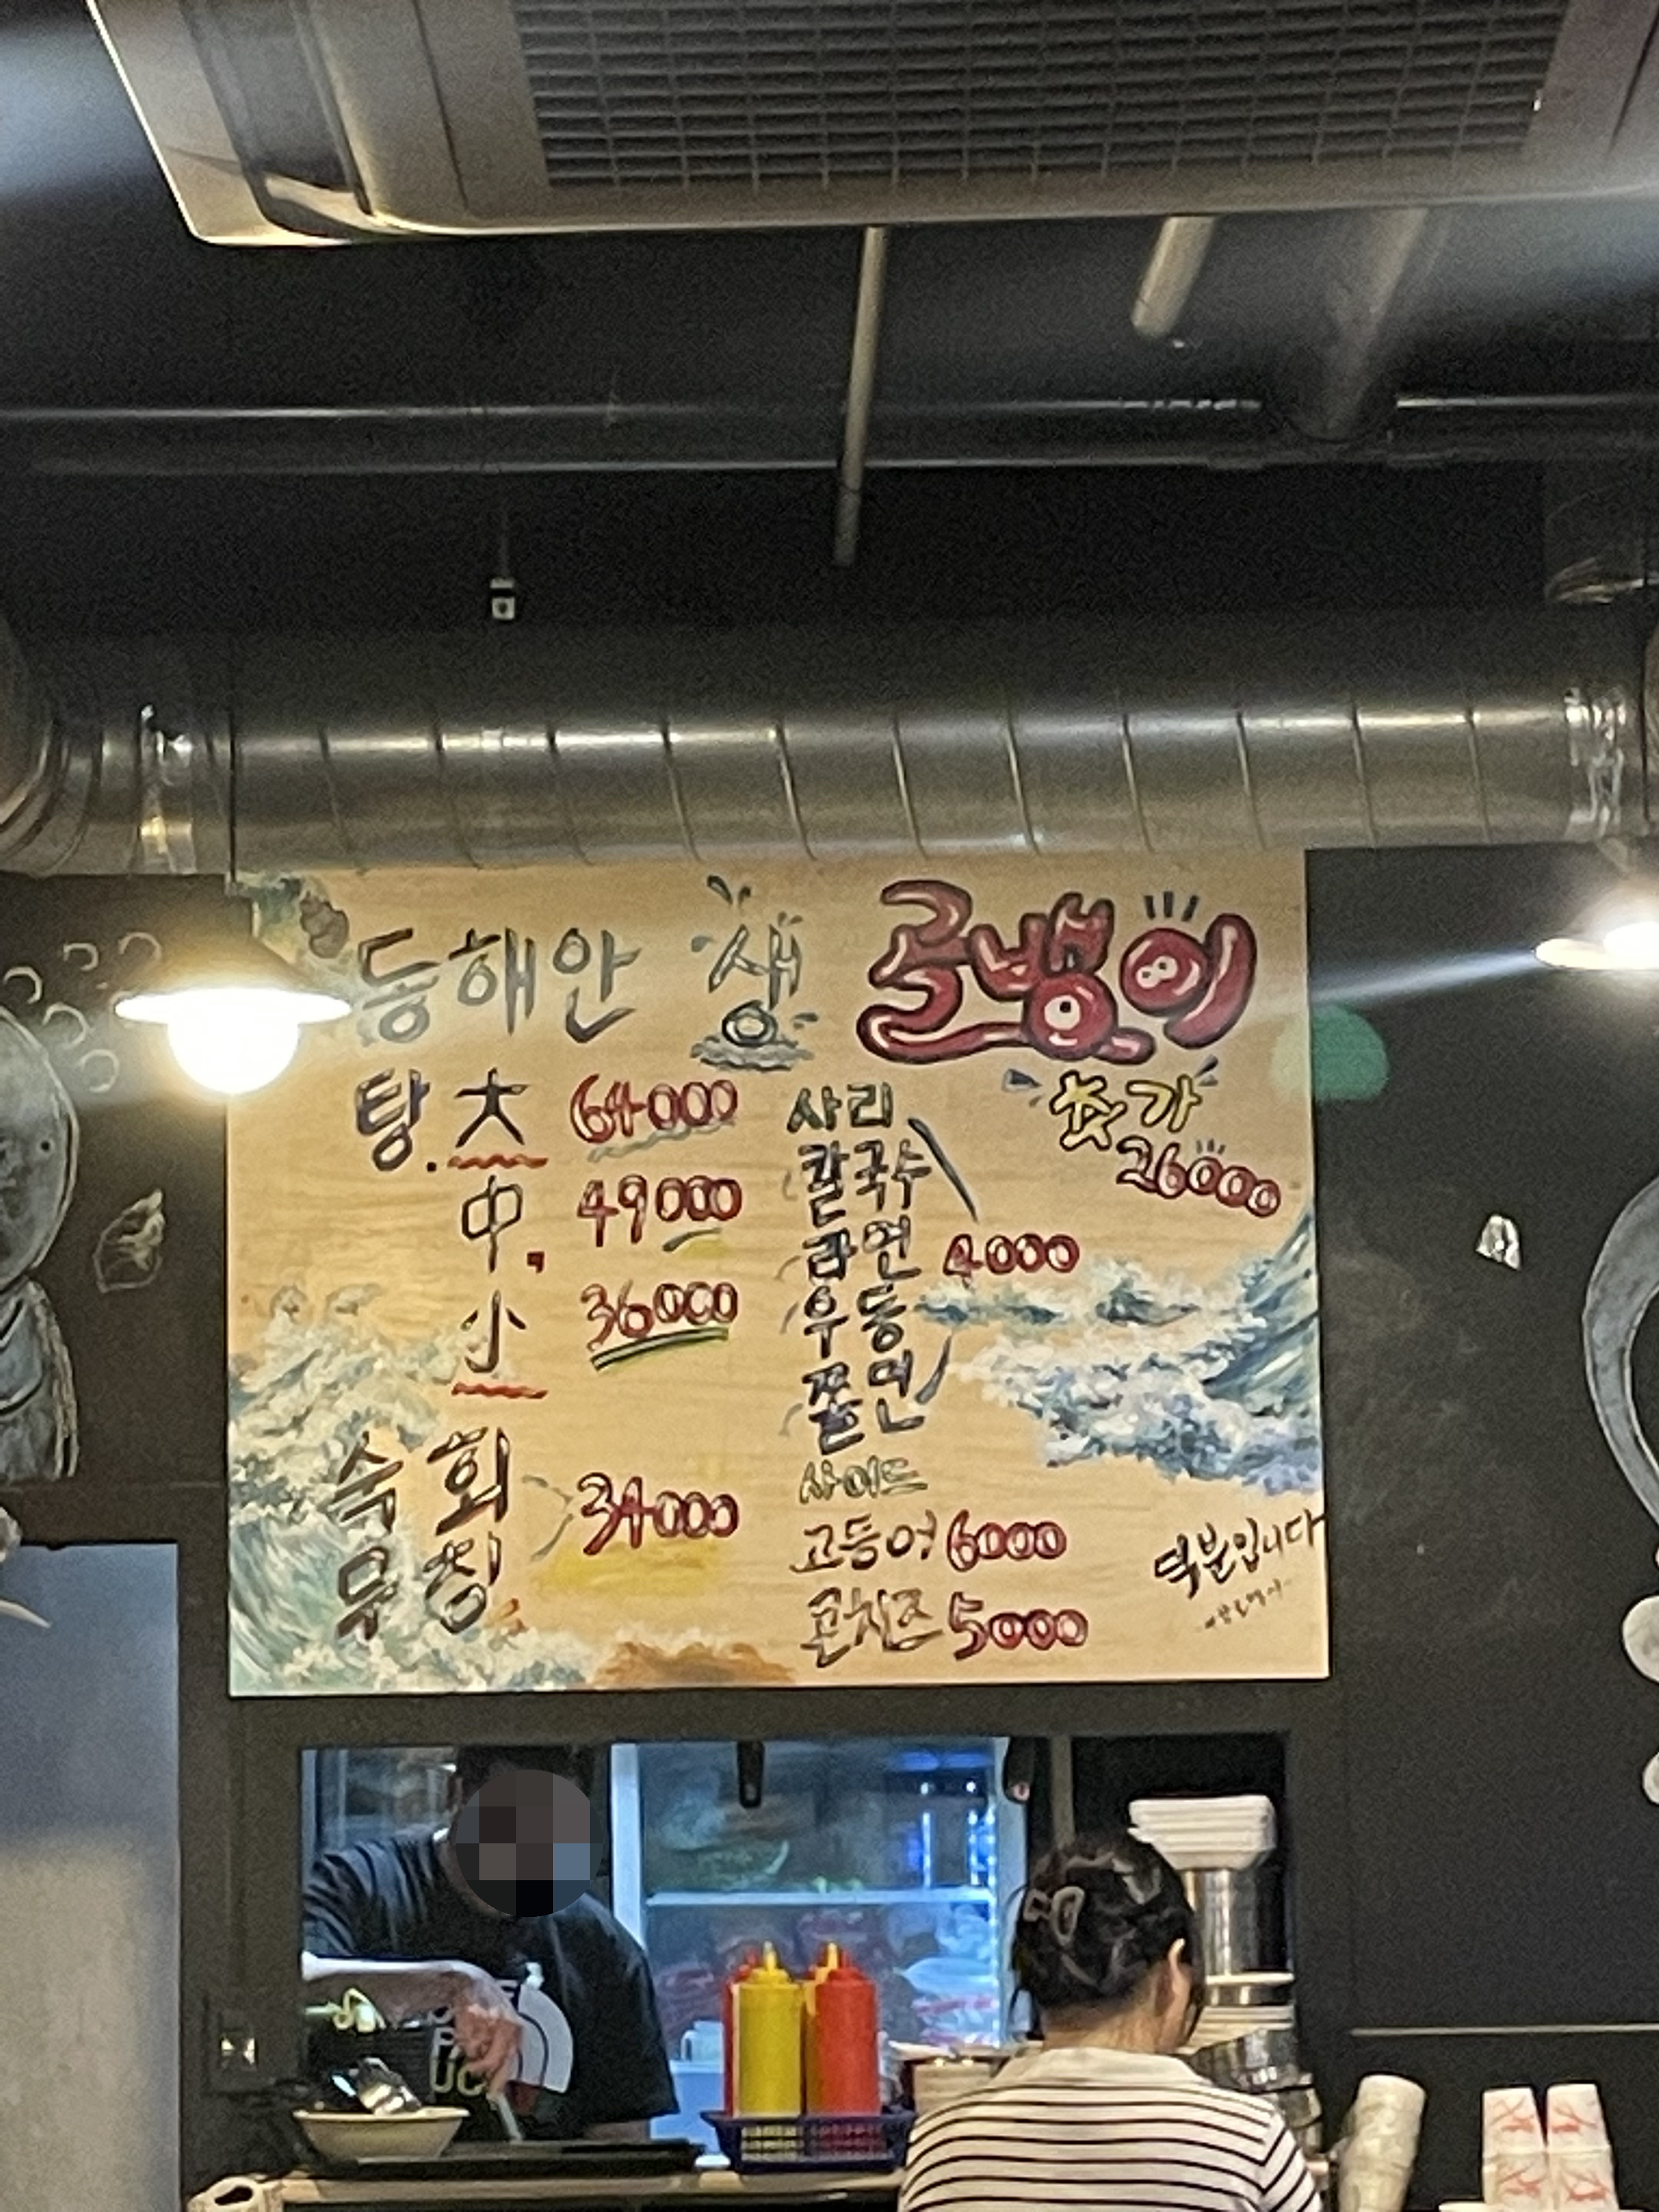 동해안 생 골뱅이
탕. 大 64000
中. 49000
小 36000
숙회
무침 34000
사리
칼국수
라면
우동
쫄면
4000
추가
26000
사이드
고등어 6000
콘치즈 5000
덕분입니다